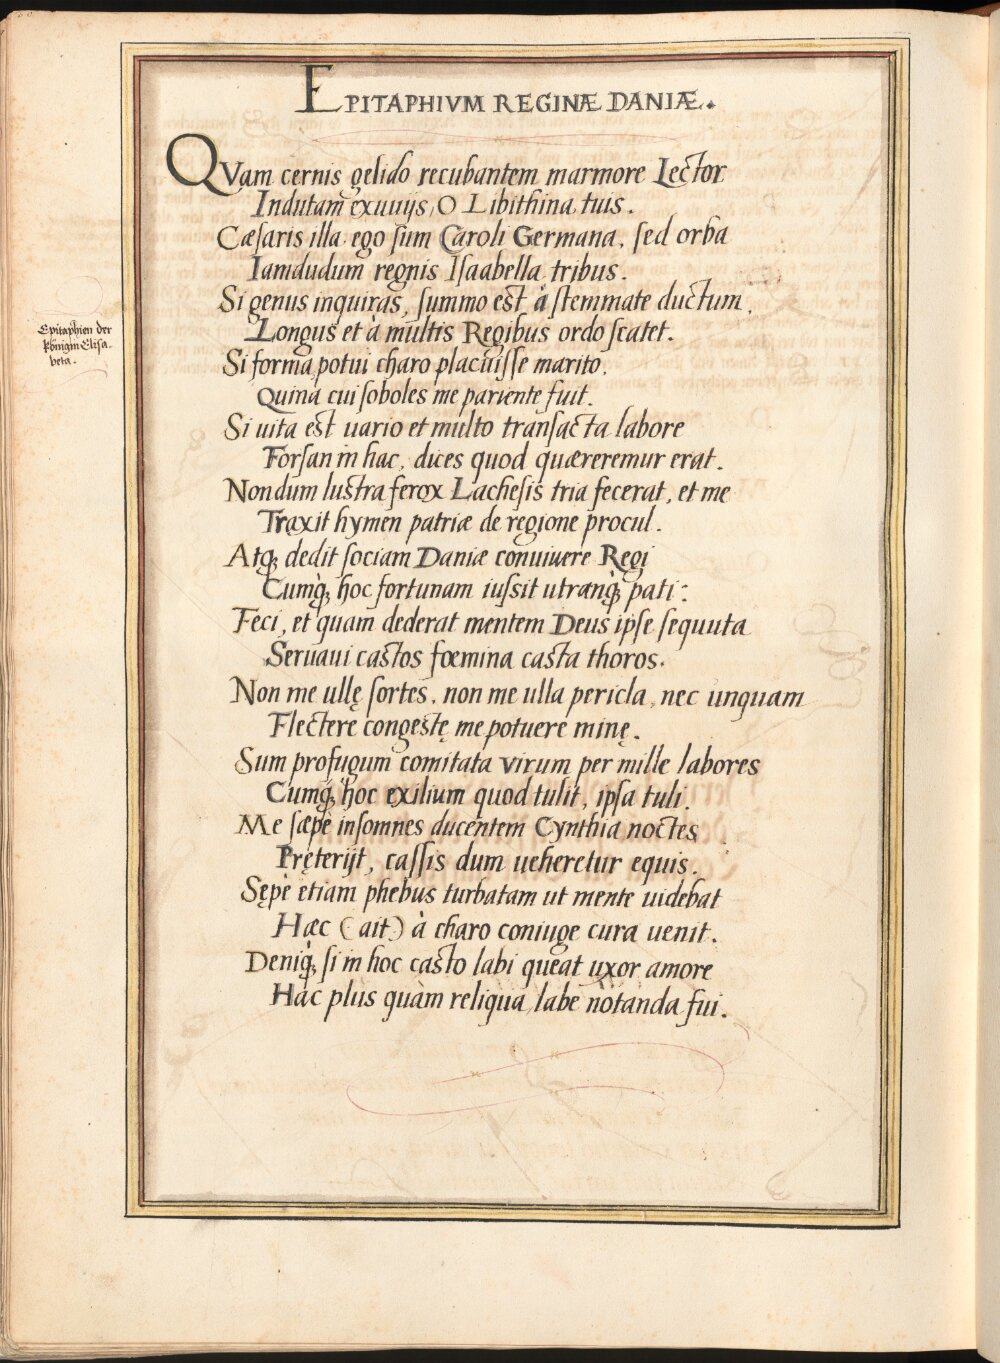 EPITAPHIVM REGINÆ DANIÆ.
QVam cernis gelido recubantem marmore Lector
Indutam exuuijs, O Libithina tuis.
Cæsaris illa ego sum Caroli Germana, sed orba
Iamdudum regnis Isaabella tribus.
Si genus inquiras, summo est à stemmate ductum,
Longus et à multis Regibus ordo scatet.
Si forma potui charo placuisse marito,
Quina cui soboles me pariente fuit.
Si uita est uario et multo transacta labore
Forsan in hac, dices quod quæreremur erat.
Nondum lustra ferox Lachesis tria fecerat, et me
Traxit hymen patriæ de regione procul.
Atq; dedit sociam Daniæ conuiuere Regi
Cumq; hoc fortunam iussit utranq; pati:
Feci, et quam dederat mentem Deus ipse sequuta
Seruaui castos fœmina casta thoros.
Non me ullę sortes, non me ulla pericla, nec unquam
Flectere congestę me potuere minę.
Sum profugum comitata virum per mille labores
Cumq; hoc exilium quod tulit, ipsa tuli.
Me sæpe insomnes ducentem Cynthia noctes
Pręterijt, cassis dum ueheretur equis.
Sępè etiam phebus turbatam ut mente uidebat
Hæc (ait) à charo coniuge cura uenit.
Deniq; si in hoc casto labi queat uxor amore
Hac plus quàm reliqua labe notanda fui.
Epitaphien der
Königin Elisa-
beta.